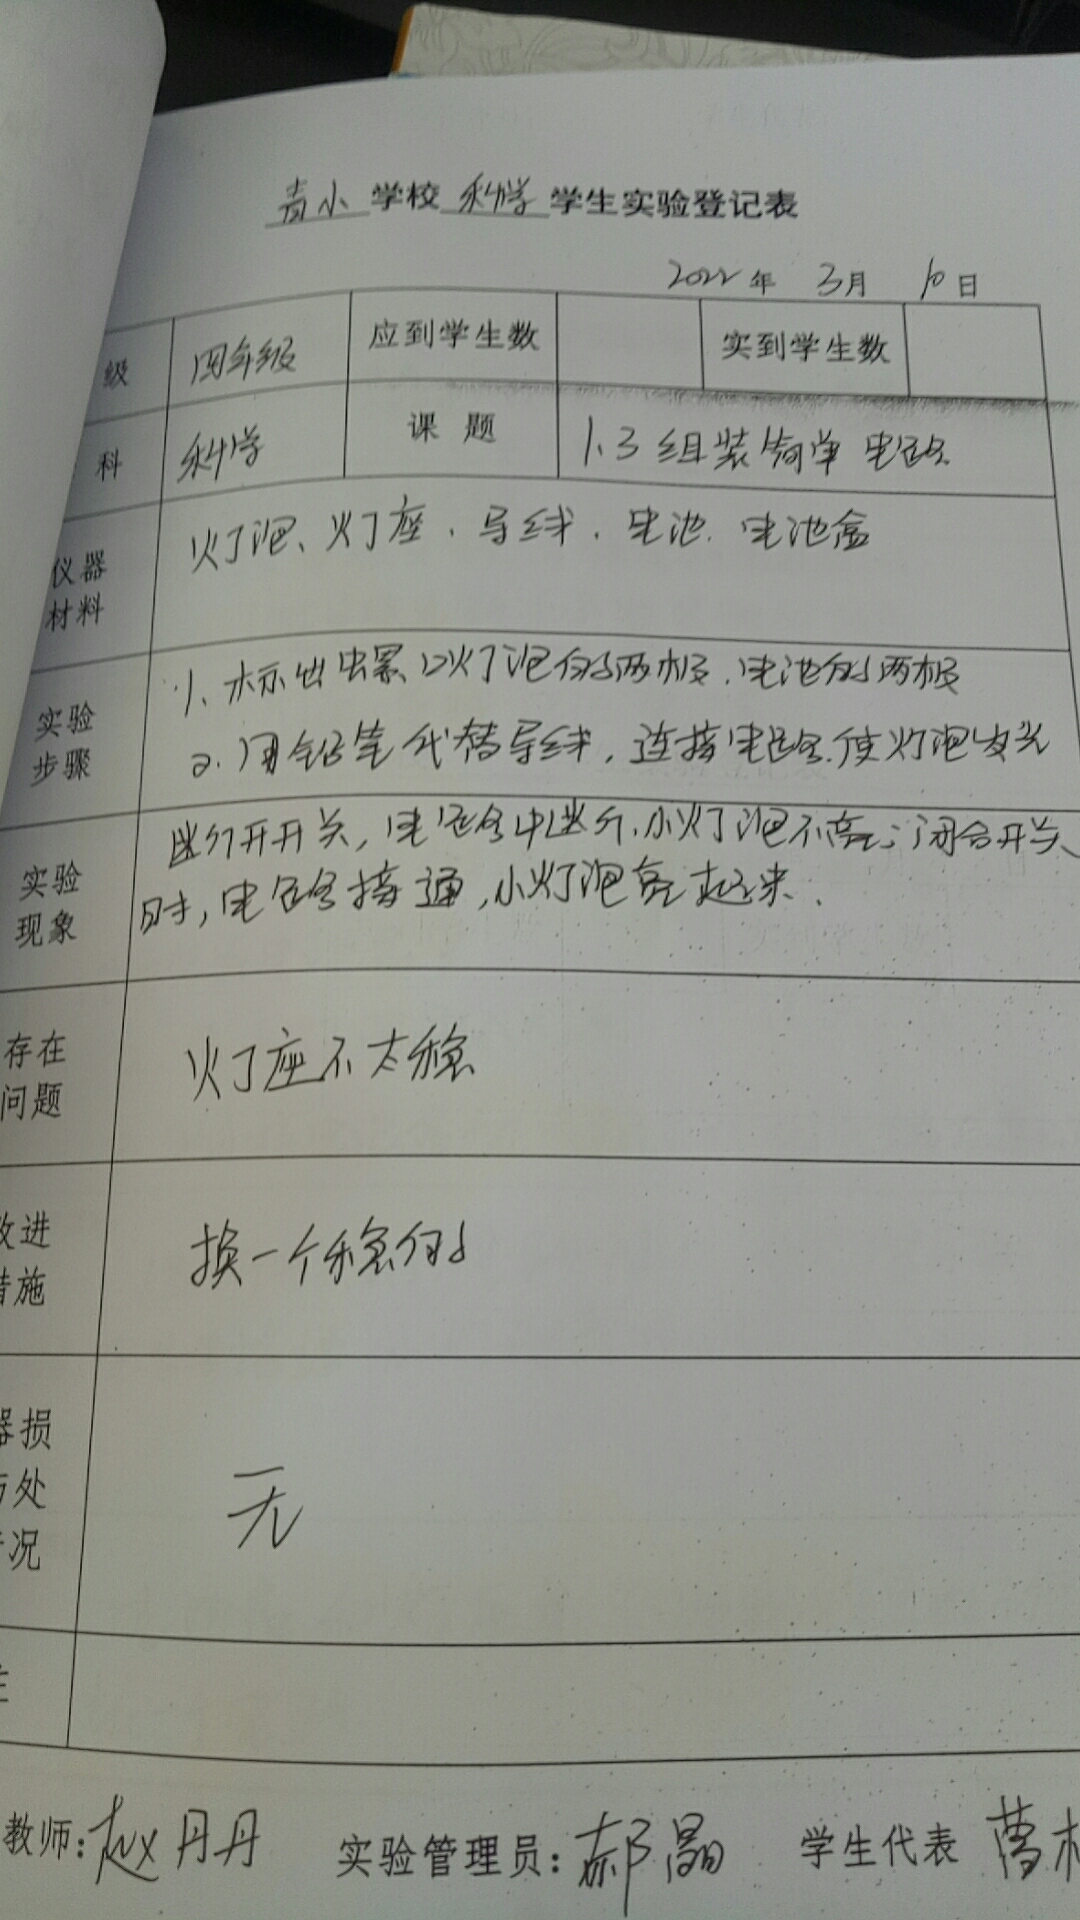 青小学校科学学生实验登记表
2022年 3月 10日
级 四年级 应到学生数 实到学生数
科 科学 课题 1.3组装简单电路
仪器 灯泡、灯座、导线、电池、电池盒
材料
实验 1、标出 灯泡的两极、电池的两极
步骤 2.用铅笔代替导线,连接电路.使灯泡发光
实验 断开开关,电路中断,小灯泡不亮;闭合开关
现象 时,电路接通,小灯泡亮起来.
存在 灯座不太稳
问题
改进 换一个稳的
措施
器损
处 无
况
教师:赵丹丹 实验管理员:郝晶 学生代表 曹